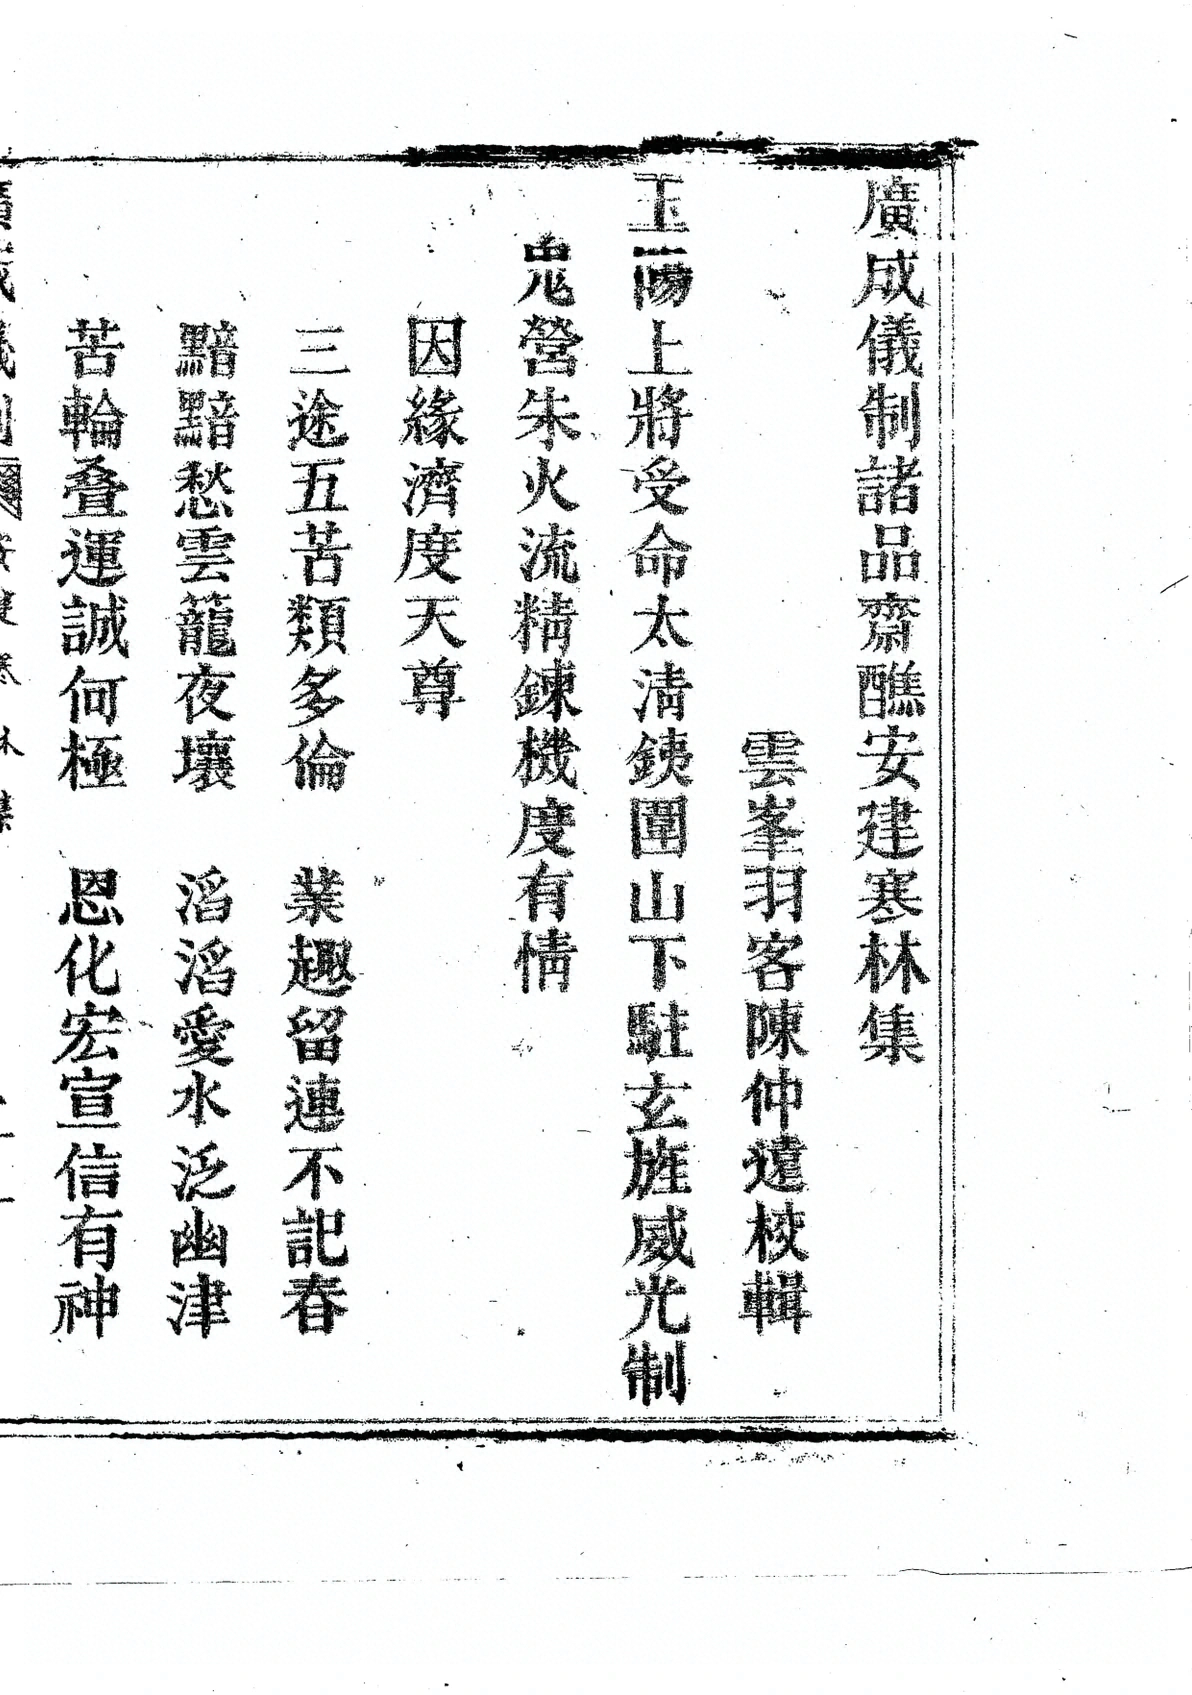 廣成儀制諸品齋醮安建寒林集
雲峯羽客陳仲遠校輯
玉陽上將受命太清銕圍山下駐玄旌威光制
鬼營朱火流精鍊機度有情
因緣濟度天尊
三途五苦類多倫　業趣留連不記春
黯黯愁雲籠夜壤　滔滔愛水泛幽津
苦輪叠運誠何極　恩化宏宣信有神
廣成儀制　安建寒林集